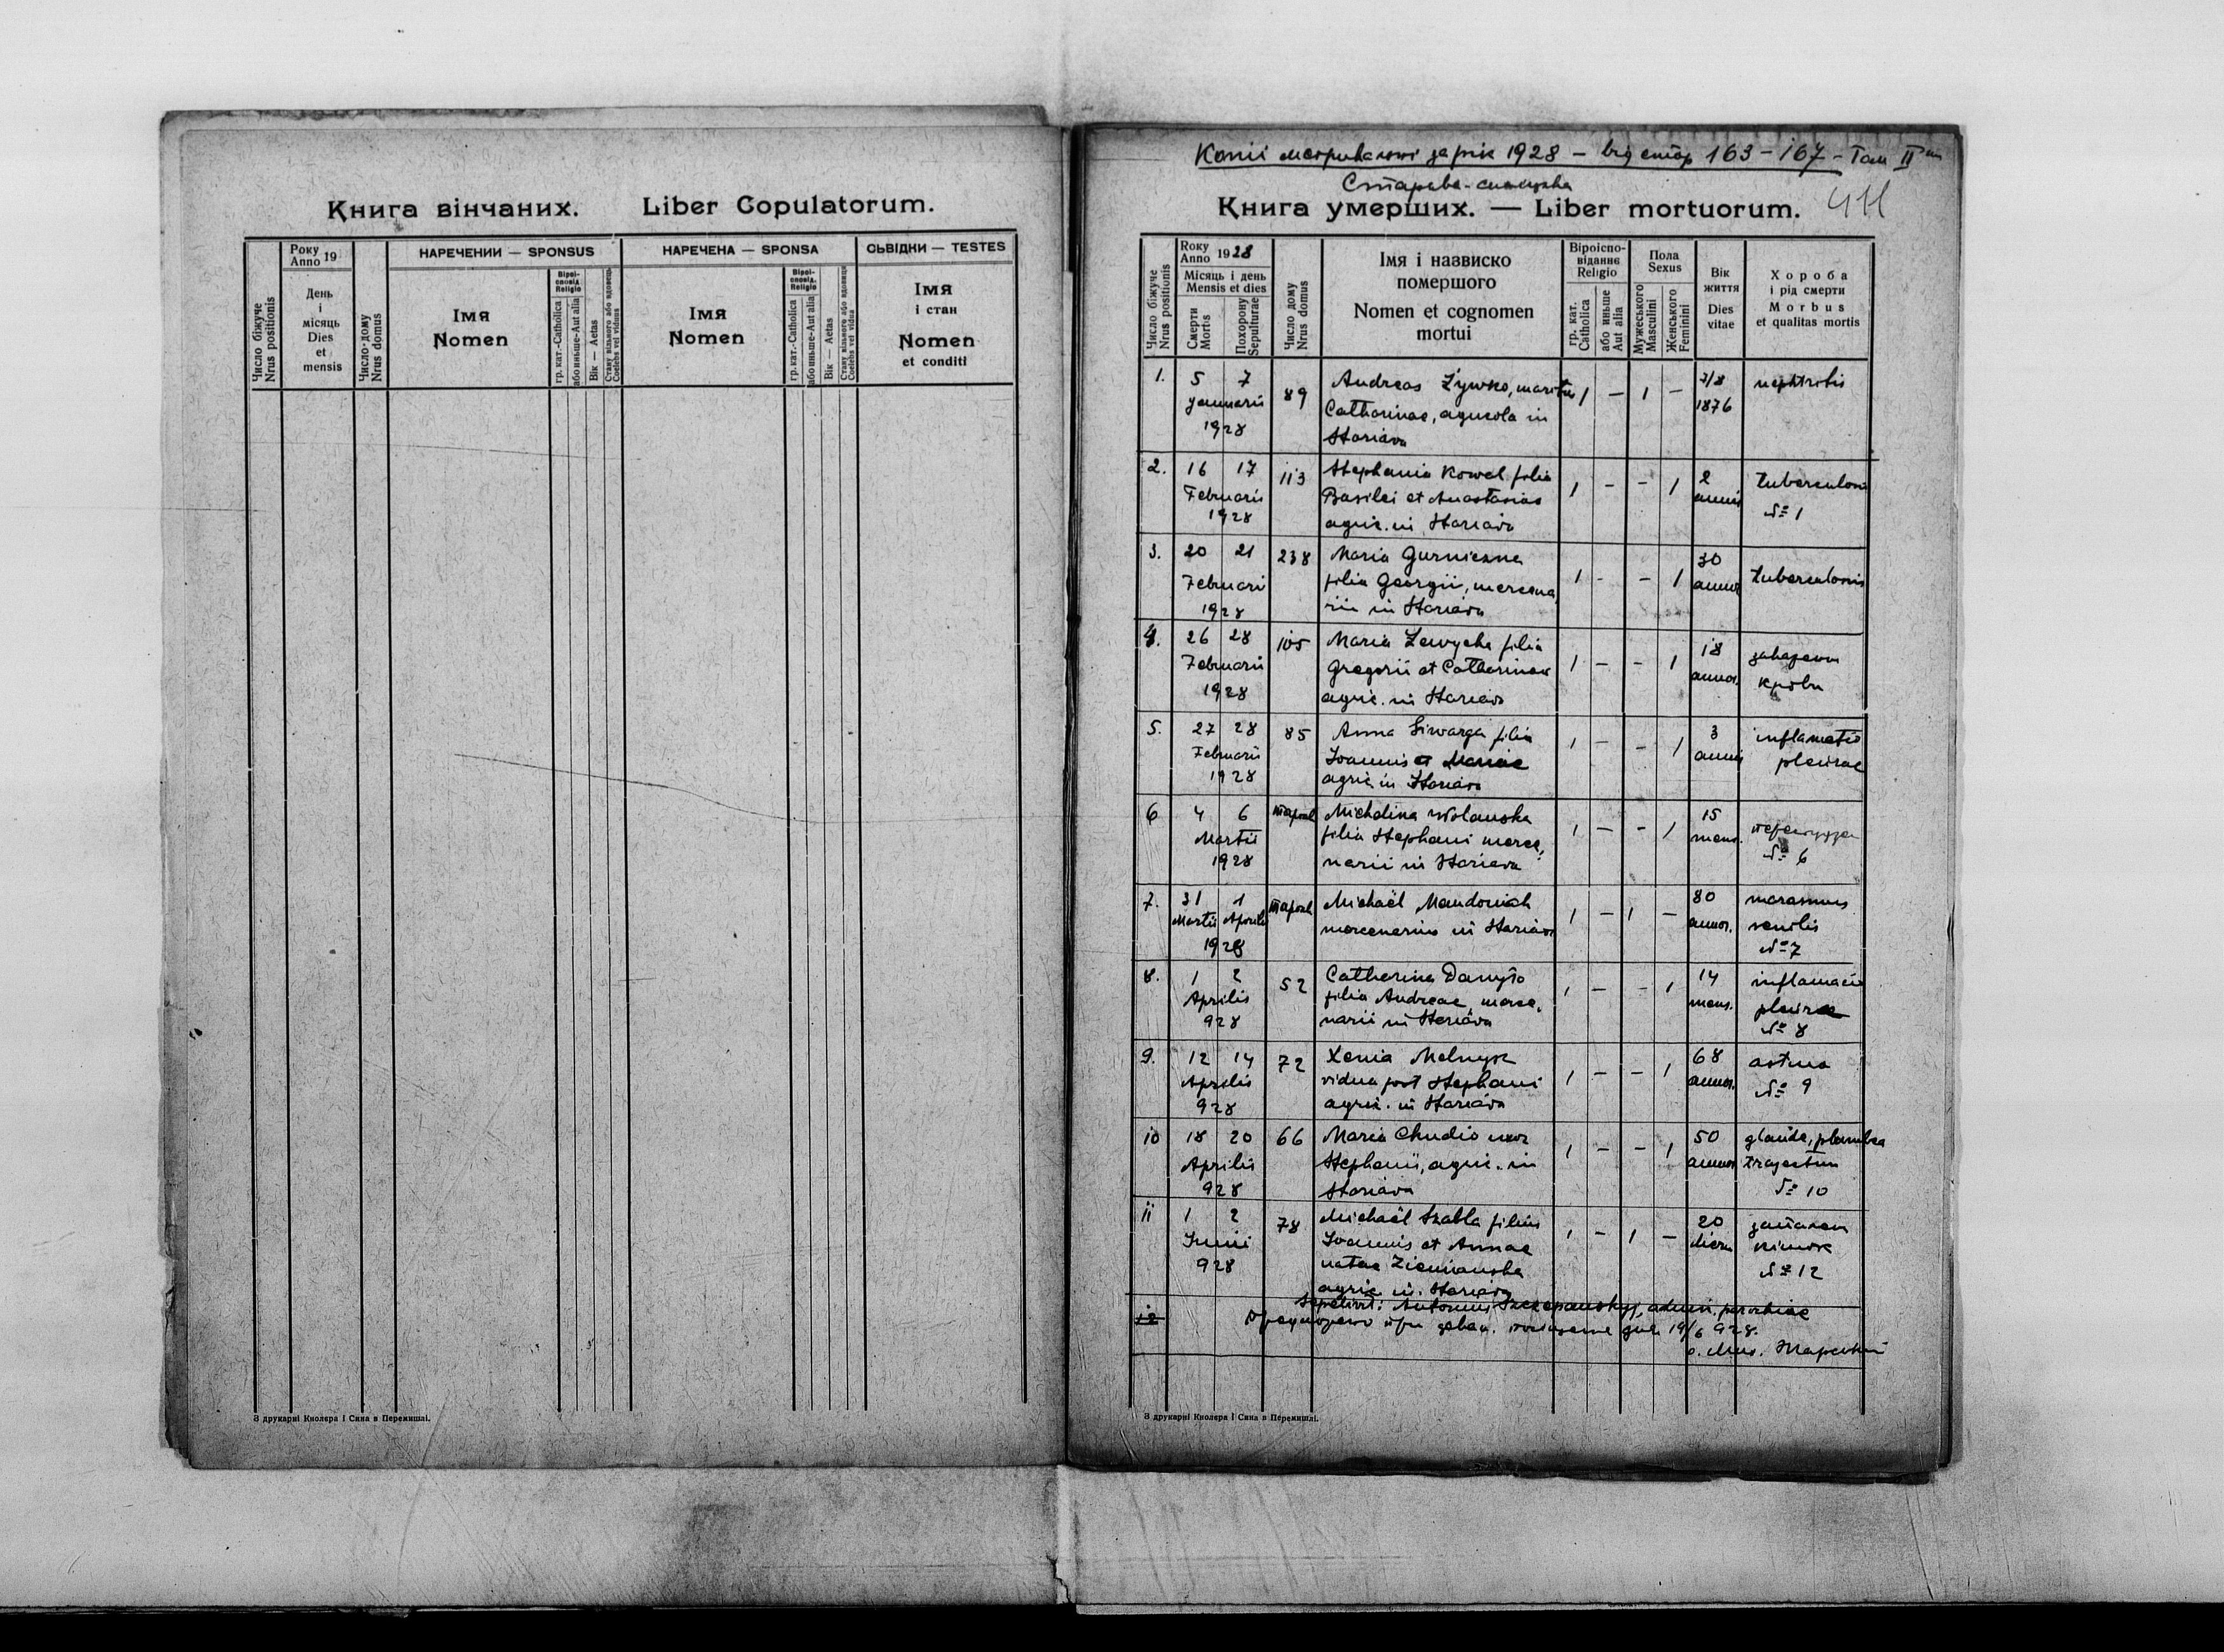 Книга вінчаних. Liber Copulatorum.
Число біжуче Nrus positionis
Року Anno 19
День і місяць Dies et mensis
Число-дому Nrus domus
НАРЕЧЕНИЙ — SPONSUS
Імя Nomen
Віроісповід. Religio
гр. кат.-Catholica
або иньше-Aut alia
Вік — Aetas
Стану вільного або вдовець Coelebs vel viduus
НАРЕЧЕНА — SPONSA
Імя Nomen
Віроісповід. Religio
гр. кат.-Catholica
або иньше-Aut alia
Вік — Aetas
Стану вільного або вдовиця Coelebs vel vidua
СЬВІДКИ — TESTES
Імя і стан
Nomen et conditi
З друкарні Кнолєра і Сина в Перемишлі.
Копії за рік 1928 — від стор 163-167 - Том II
Старява
Книга умерших. — Liber mortuorum. 411
Число біжуче Nrus positionis
Року Anno 1928
Місяць і день Mensis et dies
Смерти Mortis
Похорону Sepulturae
Число дому Nrus domus
Імя і назвиско помершого
Nomen et cognomen mortui
Віроісповіданнє Religio
гр. кат. Catholica
або иньше Aut alia
Пола Sexus
Мужеського Masculini
Женського Feminini
Вік життя Dies vitae
Хороба і рід смерти
Morbus et qualitas mortis
1. 5 7 Januarii 1928 89 Andreas Żywko, maritus 1 — 1 — 7/8 1876 nephritis
Catharinae, agricola in
Stariava
2. 16 17 Februarii 1928 113 Stephania Kowal filia 1 - - 1 2 annis tuberculosis №1
Basilii et Anastasiae
agric. in Stariava
3. 20 21 Februari 1928 238 Maria Gurniczna 1 - - 1 30 annor tuberculosis
filia Georgii, mercena
rii in Stariava
4. 26 28 Februarii 1928 105 Maria filia 1 - - 1 18 annor. крови
Gregorii et Catharinae
agric. in Stariava
5. 27 28 Februarii 1928 85 Anna filia 1 - - 1 3 annis inflamatio pleurae
Ioannis et Mariae
agric in Stariava
6 4 6 Martii 1928 Michalina Wolanska 1 — - 1 15 mens. № 6
filia Stephani merce,
narii in Stariava
7. 31 1 Martii Aprilis 1928 Michaël 1 - 1 — 80 annor. marasmus senilis №7
mercenarius in Stariava
8. 1 2 Aprilis 928 52 Catharina Danyło 1 - - 1 14 mens. inflamacio pleurae № 8
filia Andreae, merce,
narii in Stariava
9. 12 14 Aprilis 928 72 Xenia Melnyk 1 - - 1 68 annor. astma № 9
vidua post Stephani
agric. in Stariava
10 18 20 Aprilis 928 66 Maria Chudio uxor 1 - - 1 50 annor glande, plumbea № 10
Stephani, agric. in
Stariava
11 1 2 Junii 928 78 Michaël Szabla filius 1 - 1 — 20 dierum запален кишок №12
Ioannis et Annae
natae Ziemianska
agric in. Stariava
12 Sepelivit: Antonius Szczepanskyj, admin. parochiae
при декан. дня 19/6 928.
З друкарні Кнолєра і Сина в Перемишлі.